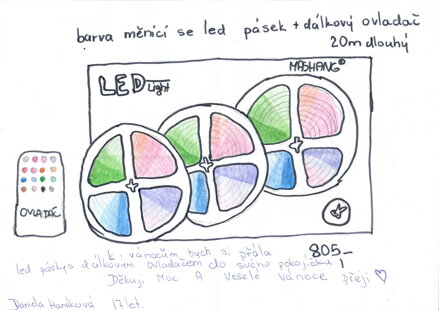 barva měnící se led pásek + dálkový ovladač
20m dlouhý
MASHANG®
LED Light
OVLADAČ
805,-
K vánocům bych si přála
led pásky s dálkovým ovladačem do svého pokojíčku
Děkuji Moc A Veselé Vánoce přeji ♡
Daniela Hanáková 17 let.